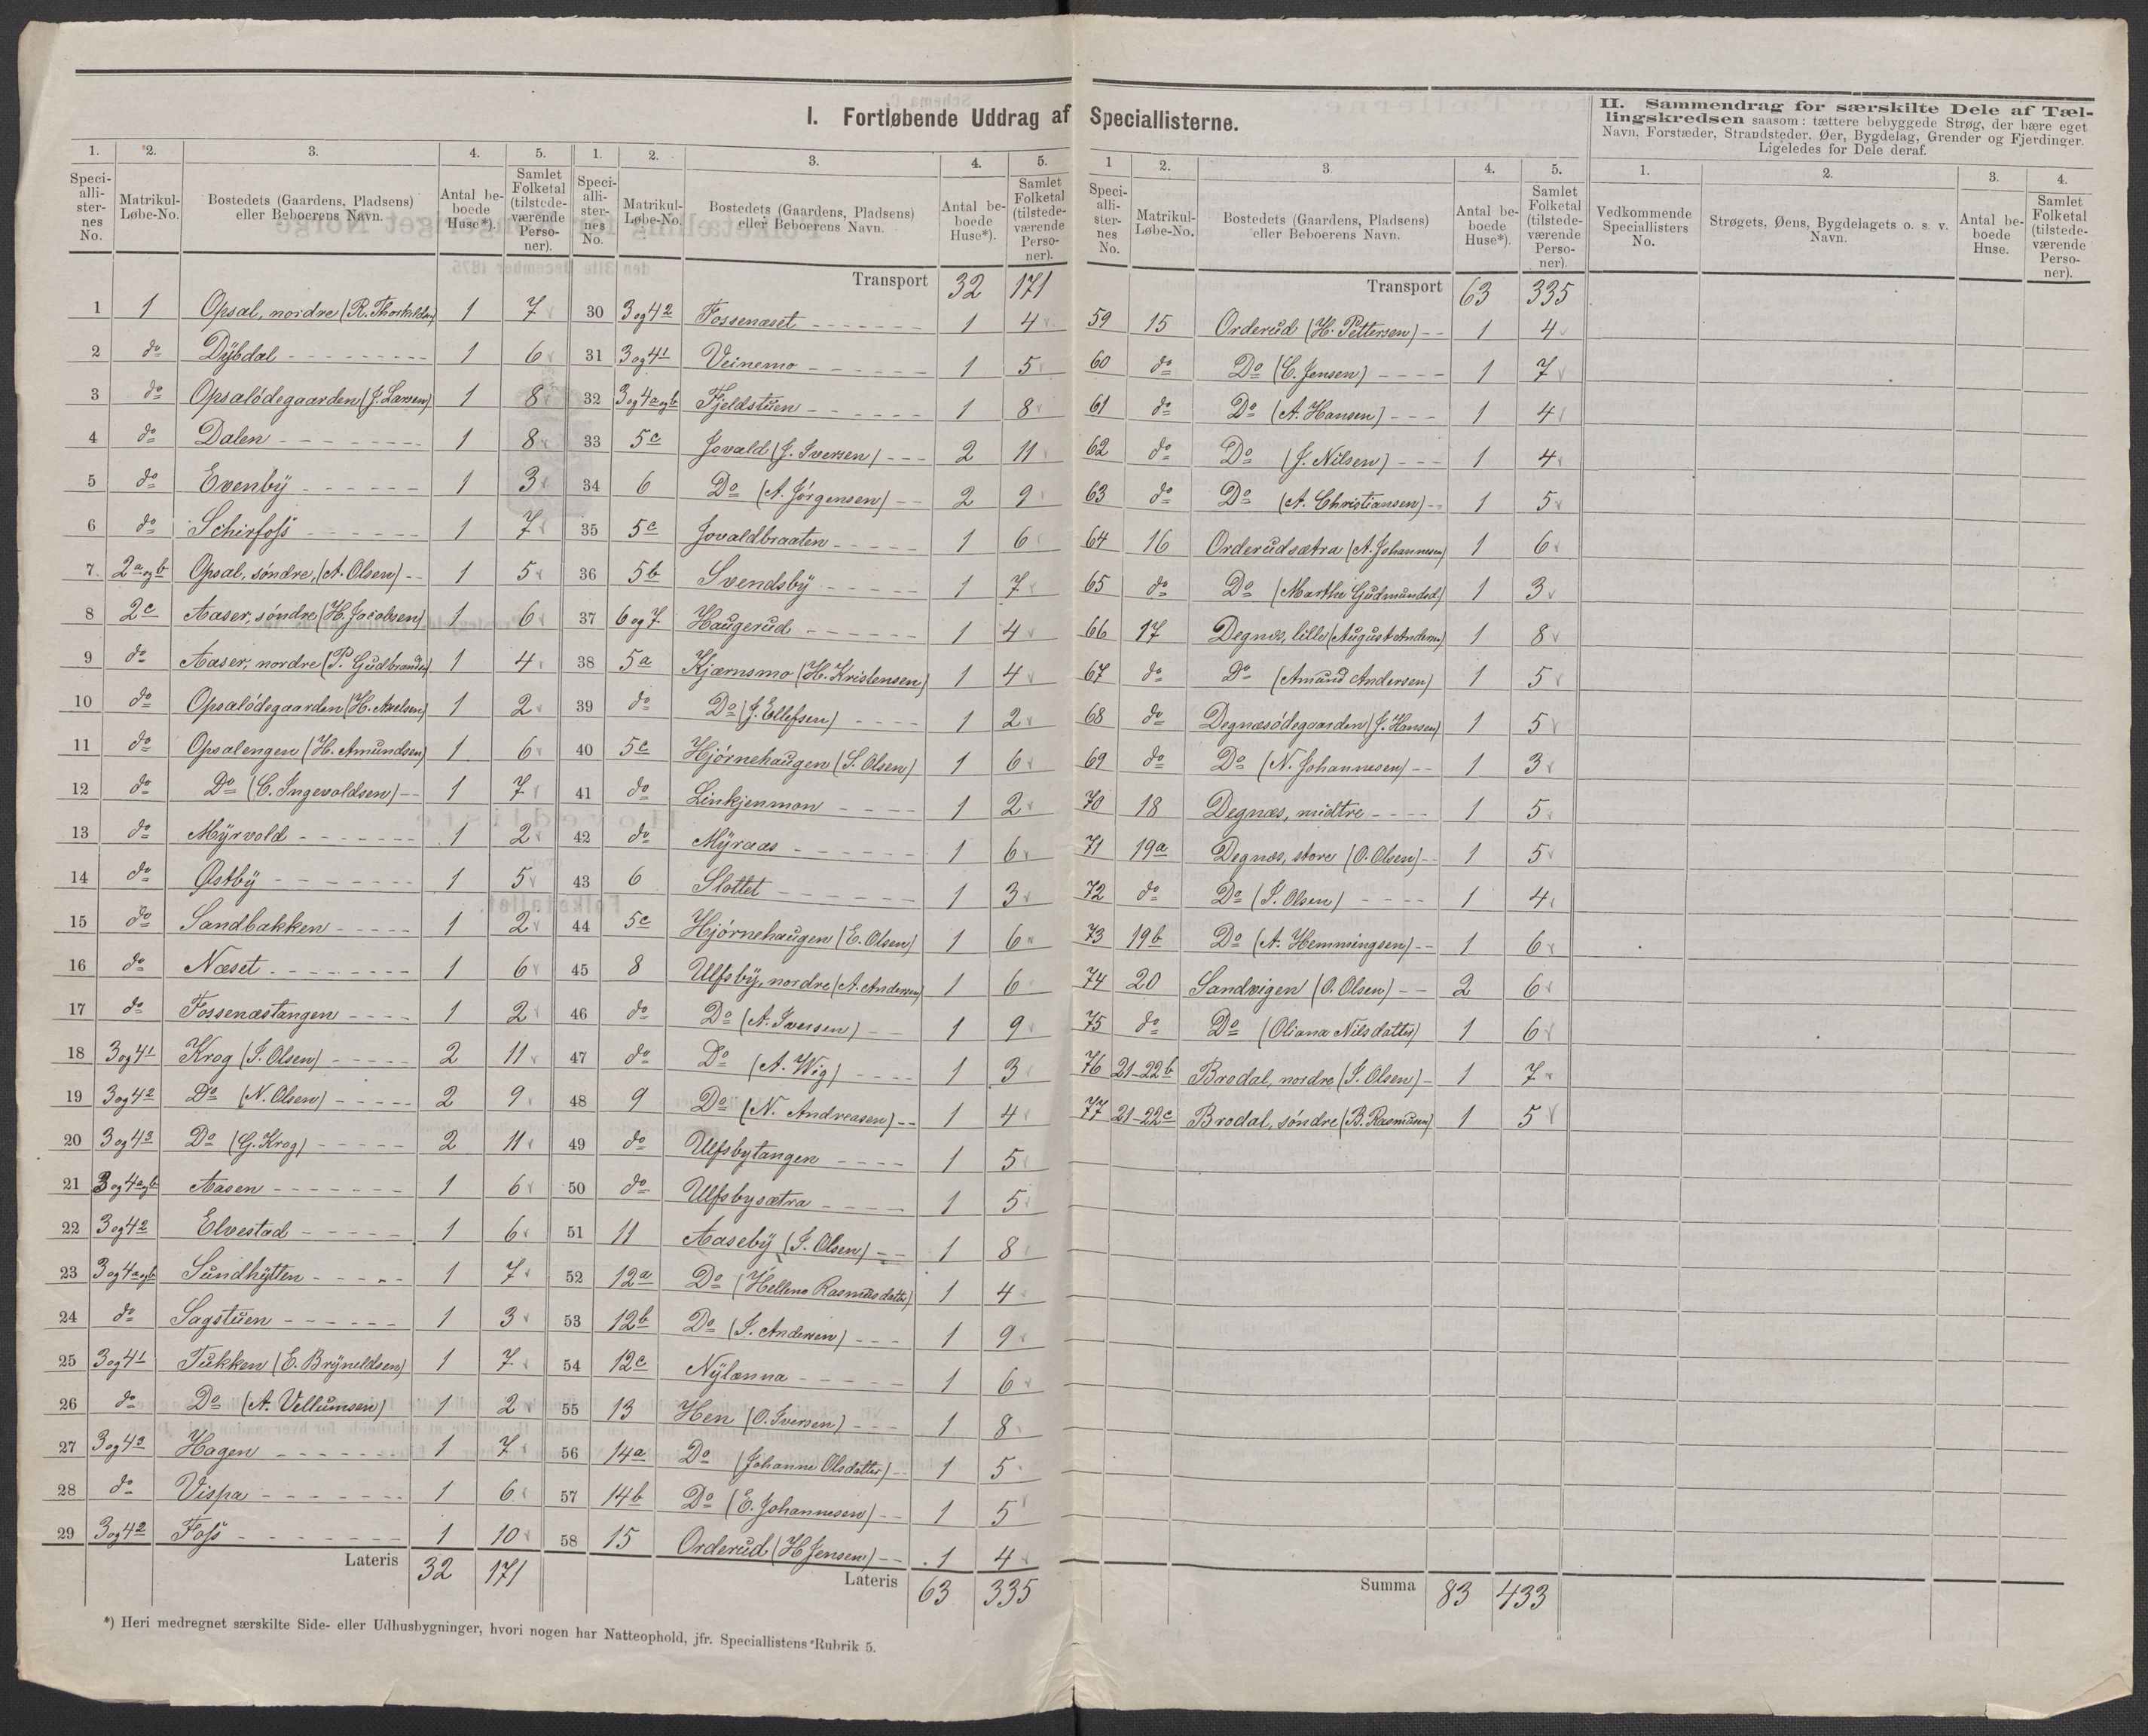 I. Fortløbende Uddrag af Speciallisterne.
1. 2. 3. 4. 5.
Speci-alli-ster-nes No. Matrikul-Løbe-No. Bostedets (Gaardens, Pladsens) eller Beboerens Navn. Antal be-boede Huse*). Samlet Folketal (tilstede-værende Perso-ner).
1 1 Opsal, nordre (R. Thorkildsen) 1 7
2 do Dÿbdal 1 6
3 do Opsalödegaarden (J. Larsen) 1 8
4 do Dalen 1 8
5 do Evenbÿ 1 3
6 do Schirfoss 1 7
7 2a og b Opsal, söndre, (A. Olsen) 1 5
8 2c Aaser, söndre (H. Jacobsen) 1 6
9 do Aaser, nordre (P. Gudbrandsen) 1 4
10 do Opsalödegaarden (H. Axelsen) 1 2
11 do Opsalengen (H. Amundsen) 1 6
12 do Do (C. Ingevoldsen) 1 7
13 do Mÿrvold 1 2
14 do Østbÿ 1 5
15 do Sandbakken 1 2
16 do Næset 1 6
17 do Fossenæstangen 1 2
18 3 og 41 Krog (J. Olsen) 2 11
19 3 og 42 Do (N. Olsen) 2 9
20 3 og 43 Do (G. Krog) 2 11
21 3 og 4a og b Aasen 1 6
22 3 og 42 Elvestad 1 6
23 3 og 4a og b Sundhÿtten 1 7
24 do Sagstuen 1 3
25 3 og 41 Tukken (E. Brÿneldsen) 1 7
26 do Do (A. Vellumsen) 1 2
27 3 og 43 Hagen 1 7
28 do Vispa 1 6
29 3 og 42 Foss 1 10
Lateris 32 171
1. 2. 3. 4. 5.
Speci-alli-ster-nes No. Matrikul-Løbe-No. Bostedets (Gaardens, Pladsens) eller Beboerens Navn. Antal be-boede Huse*). Samlet Folketal (tilstede-værende Perso-ner).
Transport 32 171
30 3 og 42 Fossenæset 1 4
31 3 og 41 Veinemo 1 5
32 3 og 4a og b Fjeldstuen 1 8
33 5c Jovald (J. Iversen) 2 11
34 6 Do (A. Jörgensen) 2 9
35 5c Jovaldbraaten 1 6
36 5b Svendsbÿ 1 7
37 6 og 7 Haugerud 1 4
38 5a Kjærnsmo (H. Kristensen) 1 4
39 do Do (J. Ellefsen) 1 2
40 5c Hjörnehaugen (S. Olsen) 1 6
41 do Linkjenmon 1 2
42 do Mÿraas 1 6
43 6 Slottet 1 3
44 5c Hjörnehaugen (E. Olsen) 1 6
45 8 Ulfsbÿ, nordre (A. Andersen) 1 6
46 do Do (A. Iversen) 1 9
47 do Do (A. Wig) 1 3
48 9 Do (N. Andreasen) 1 4
49 do Ulfsbytangen 1 5
50 do Ulfsbysætra 1 5
51 11 Aasebÿ (J. Olsen) 1 8
52 12a Do (Hellene Rasmusdatter) 1 4
53 12b Do (J. Andersen) 1 9
54 12c Nÿlænna 1 6
55 13 Hen (O. Iversen) 1 8
56 14a Do (Johanne Olsdatter) 1 5
57 14b Do (E. Johannesen) 1 5
58 15 Orderud (H Jensen) 1 4
Lateris 63 335
*) Heri medregnet særskilte Side- eller Udhusbygninger, hvori nogen har Natteophold, jfr. Speciallistens Rubrik 5.
1 2. 3. 4. 5.
Speci-alli-ster-nes No. Matrikul-Løbe-No. Bostedets (Gaardens, Pladsens) eller Beboerens Navn. Antal be-boede Huse*). Samlet Folketal (tilstede-værende Perso-ner).
Transport 63 335
59 15 Orderud (H. Pettersen) 1 4
60 do Do (C. Jensen) 1 7
61 do Do (A. Hansen) 1 4
62 do Do (J. Nilsen) 1 4
63 do Do (A. Christiansen) 1 5
64 16 Orderudsætra (A. Johannesen) 1 6
65 do Do (Marthe Gudmundsd) 1 3
66 17 Degnæs, lille (August Andersen) 1 8
67 do Do (Amund Andersen) 1 5
68 do Degnæsödegaarden (J. Hansen) 1 5
69 do Do (N. Johannesen) 1 3
70 18 Degnæs, midtre 1 5
71 19a Degnæs, store (O. Olsen) 1 5
72 do Do (J. Olsen) 1 4
73 19b Do (A. Hemmingsen) 1 6
74 20 Sandvigen (O. Olsen) 2 6
75 do Do (Oliana Nilsdatter) 1 6
76 21-22b Brodal, nordre (J. Olsen) 1 7
77 21-22c Brodal, söndre (B. Rasmusen) 1 5
Summa 83 433
II. Sammendrag for særskilte Dele af Tæl-
lingskredsen saasom: tættere bebyggede Strøg, der bære eget
Navn, Forstæder, Strandsteder, Øer, Bygdelag, Grender og Fjerdinger.
Ligeledes for Dele deraf.
1. 2. 3. 4.
Vedkommende Speciallisters No. Strøgets, Øens, Bygdelagets o. s. v. Navn. Antal be-boede Huse. Samlet Folketal (tilstede-værende Perso-ner).